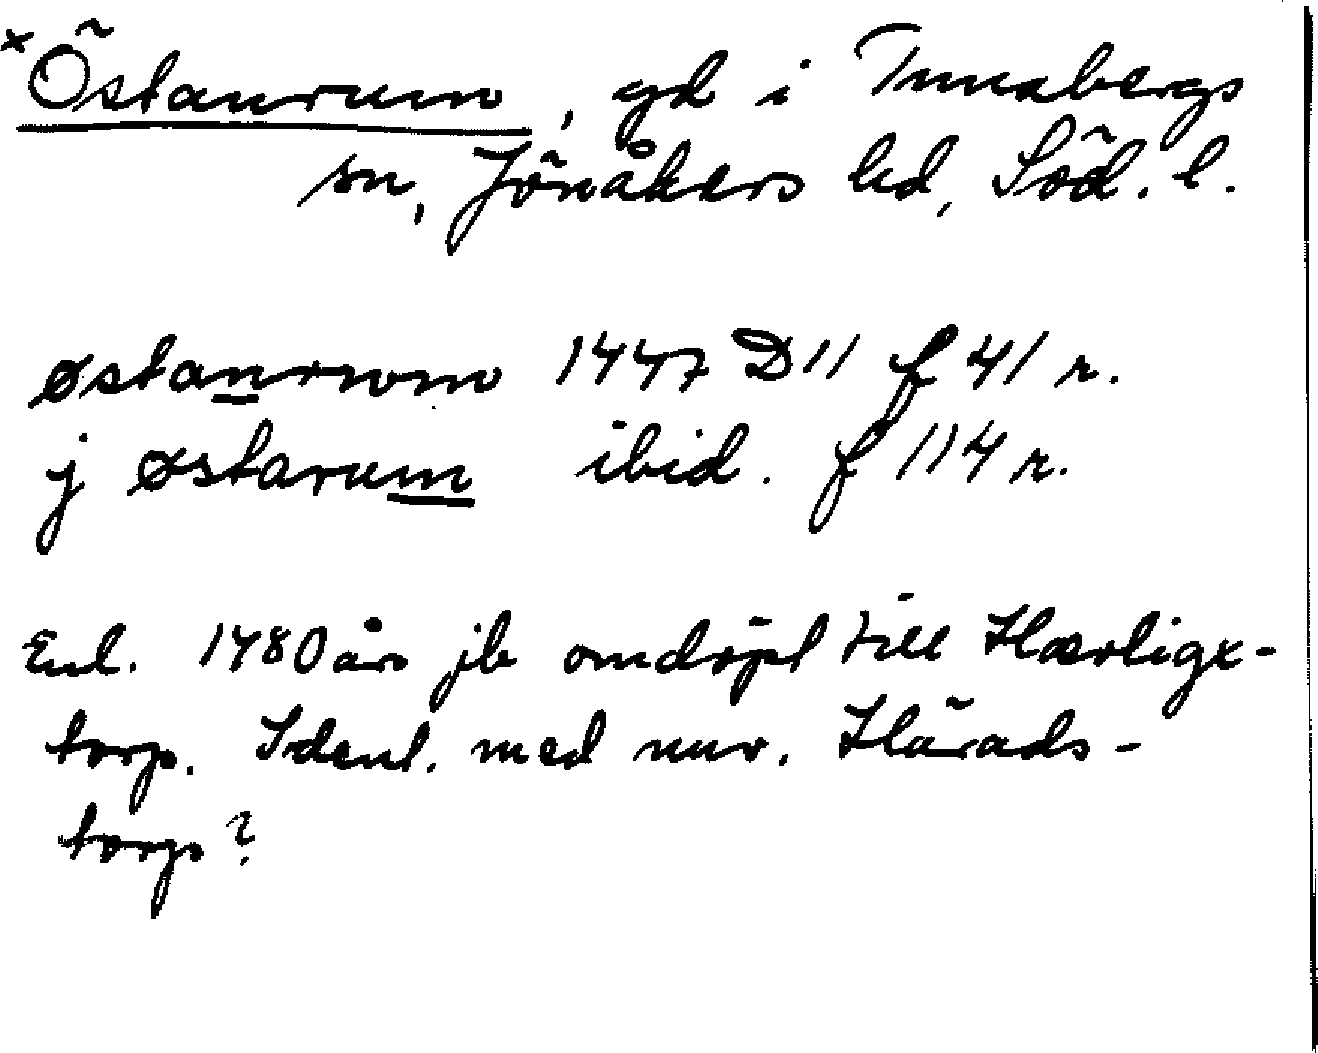 ×Östanrum, gd i Tunabergs
sn, Jönåkers hd, Söd. l.
østanrwm 1447 D11 f 41 r.
j østarum ibid. f 114 r.
Enl. 1480 års jb omdöpt till Hærligx-
torp. Ident. med nuv. Härads-
torp?